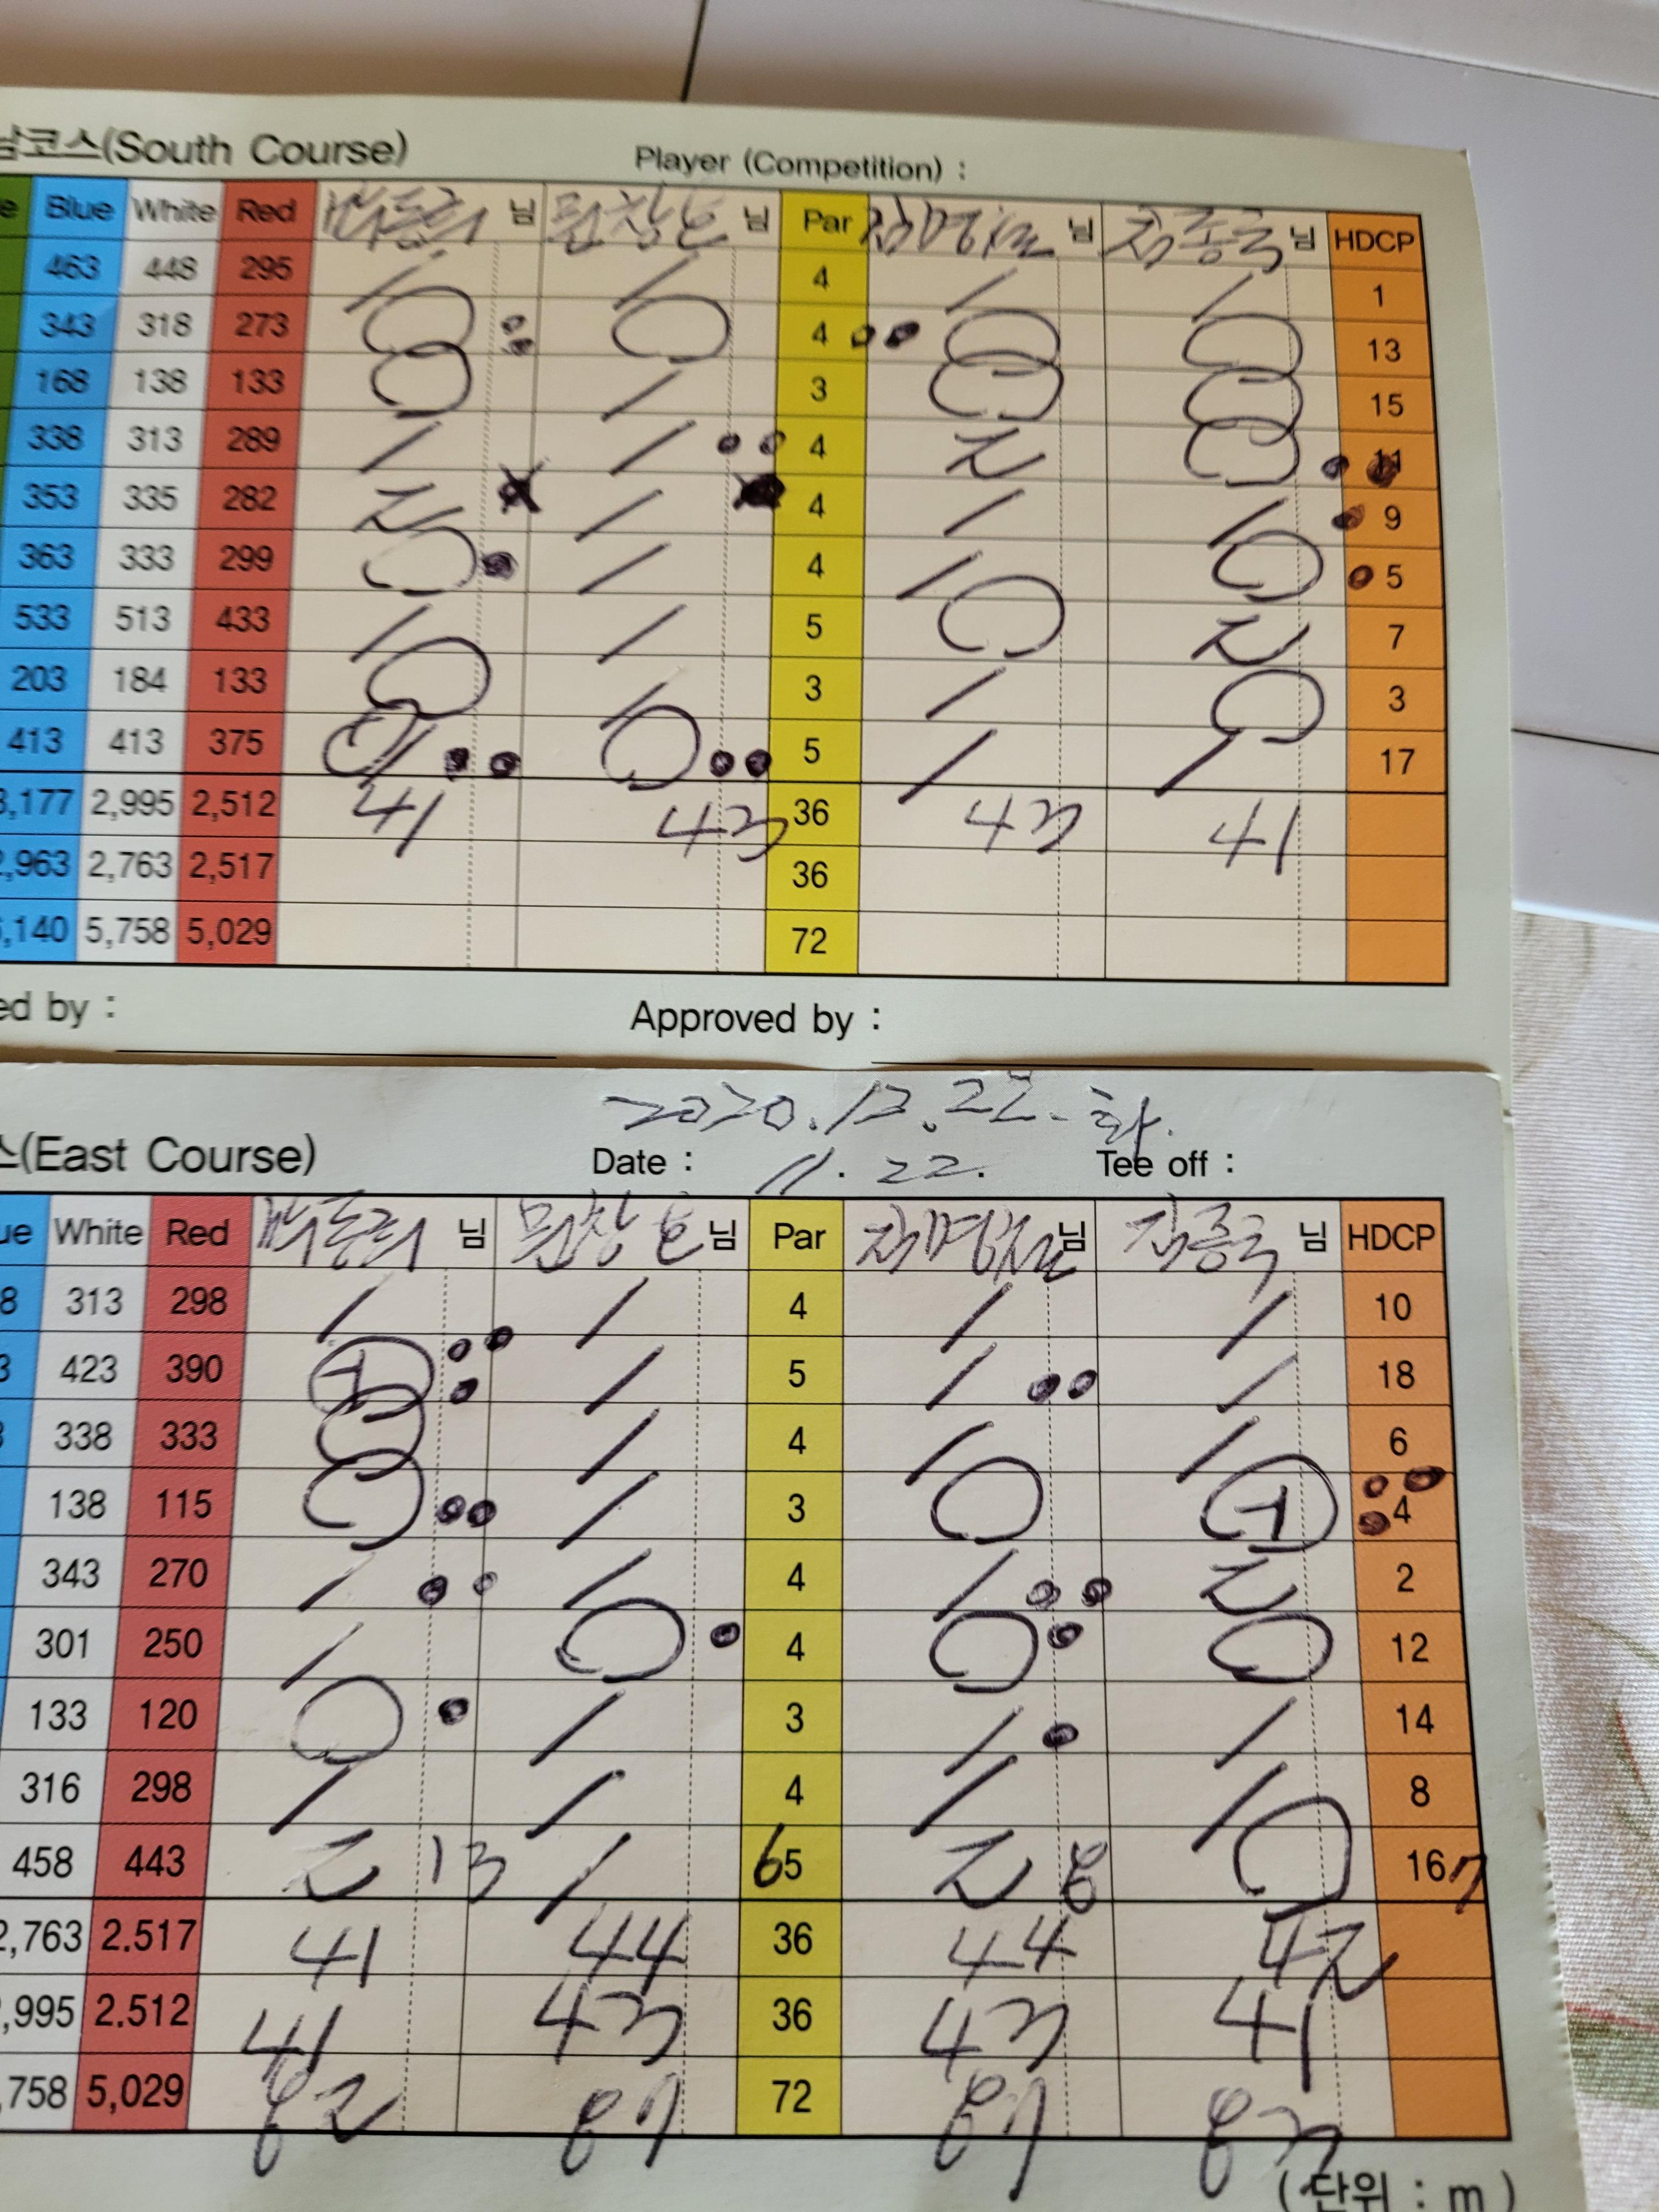 남코스(South Course) Player (Competition) :
Blue White Red 님 님 Par 님 님 HDCP
463 448 295 1 1 4 1 1 1
343 318 273 0 0 4 0 0 13
168 138 133 0 1 3 0 0 15
338 313 289 1 1 4 2 0 11
353 335 282 2 1 4 1 1 9
363 333 299 0 1 4 1 0 5
533 513 433 1 1 5 0 2 7
203 184 133 0 1 3 1 0 3
413 413 375 0 5 1 1 17
3,177 2,995 2,512 41 43 36 43 41
2,963 2,763 2,517 36
6,140 5,758 5,029 72
ed by : Approved by :
2020.12.22-화.
스(East Course) Date : 11.22. Tee off :
ue White Red 님 님 Par 님 김종국 님 HDCP
8 313 298 1 1 4 1 1 10
3 423 390 1 5 1 1 18
3 338 333 0 1 4 1 1 6
138 115 0 1 3 0 4
343 270 1 1 4 1 2 2
301 250 1 0 4 0 0 12
133 120 0 1 3 1 1 14
316 298 1 1 4 1 1 8
458 443 2 13 1 6 5 2 8 0 16 7
2,763 2.517 41 44 36 44 42
,995 2.512 41 43 36 43 41
,758 5,029 82 87 72 87 83
(단위 : m)